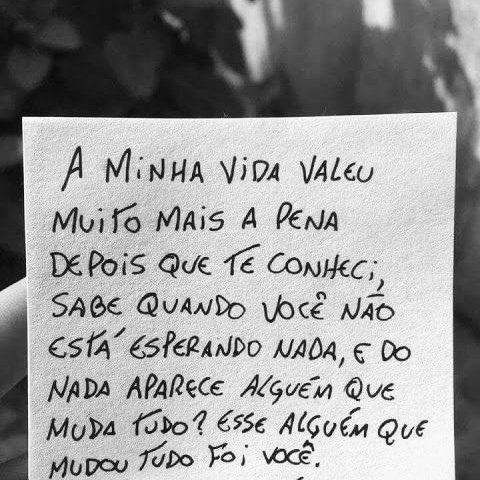 A MINHA VIDA VALEU
MUITO MAIS A PENA
DEPOIS QUE TE CONHECI,
SABE QUANDO VOCÊ NÃO
ESTÁ ESPERANDO NADA, E DO
NADA APARECE ALGUÉM QUE
MUDA TUDO? ESSE ALGUÉM QUE
MUDOU TUDO FOI VOCÊ.